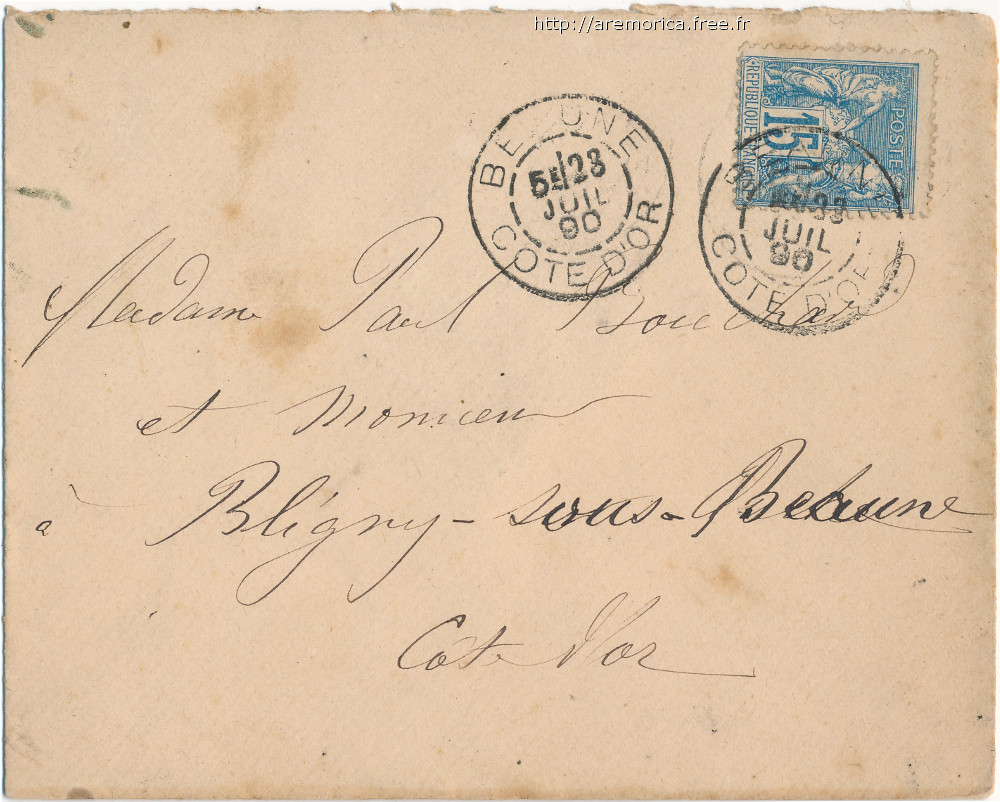 http://aremorica.free.fr
REPUBLIQUE FRANC
15
POSTE
BEAUNE
5E 23
JUIL
90
COTE D'OR
BEAUN
23
JUIL
90
COTE D'OR
Madame Paul Bouchard
et Monsieur
à Bligny-sous-Beaune
Cote d'or